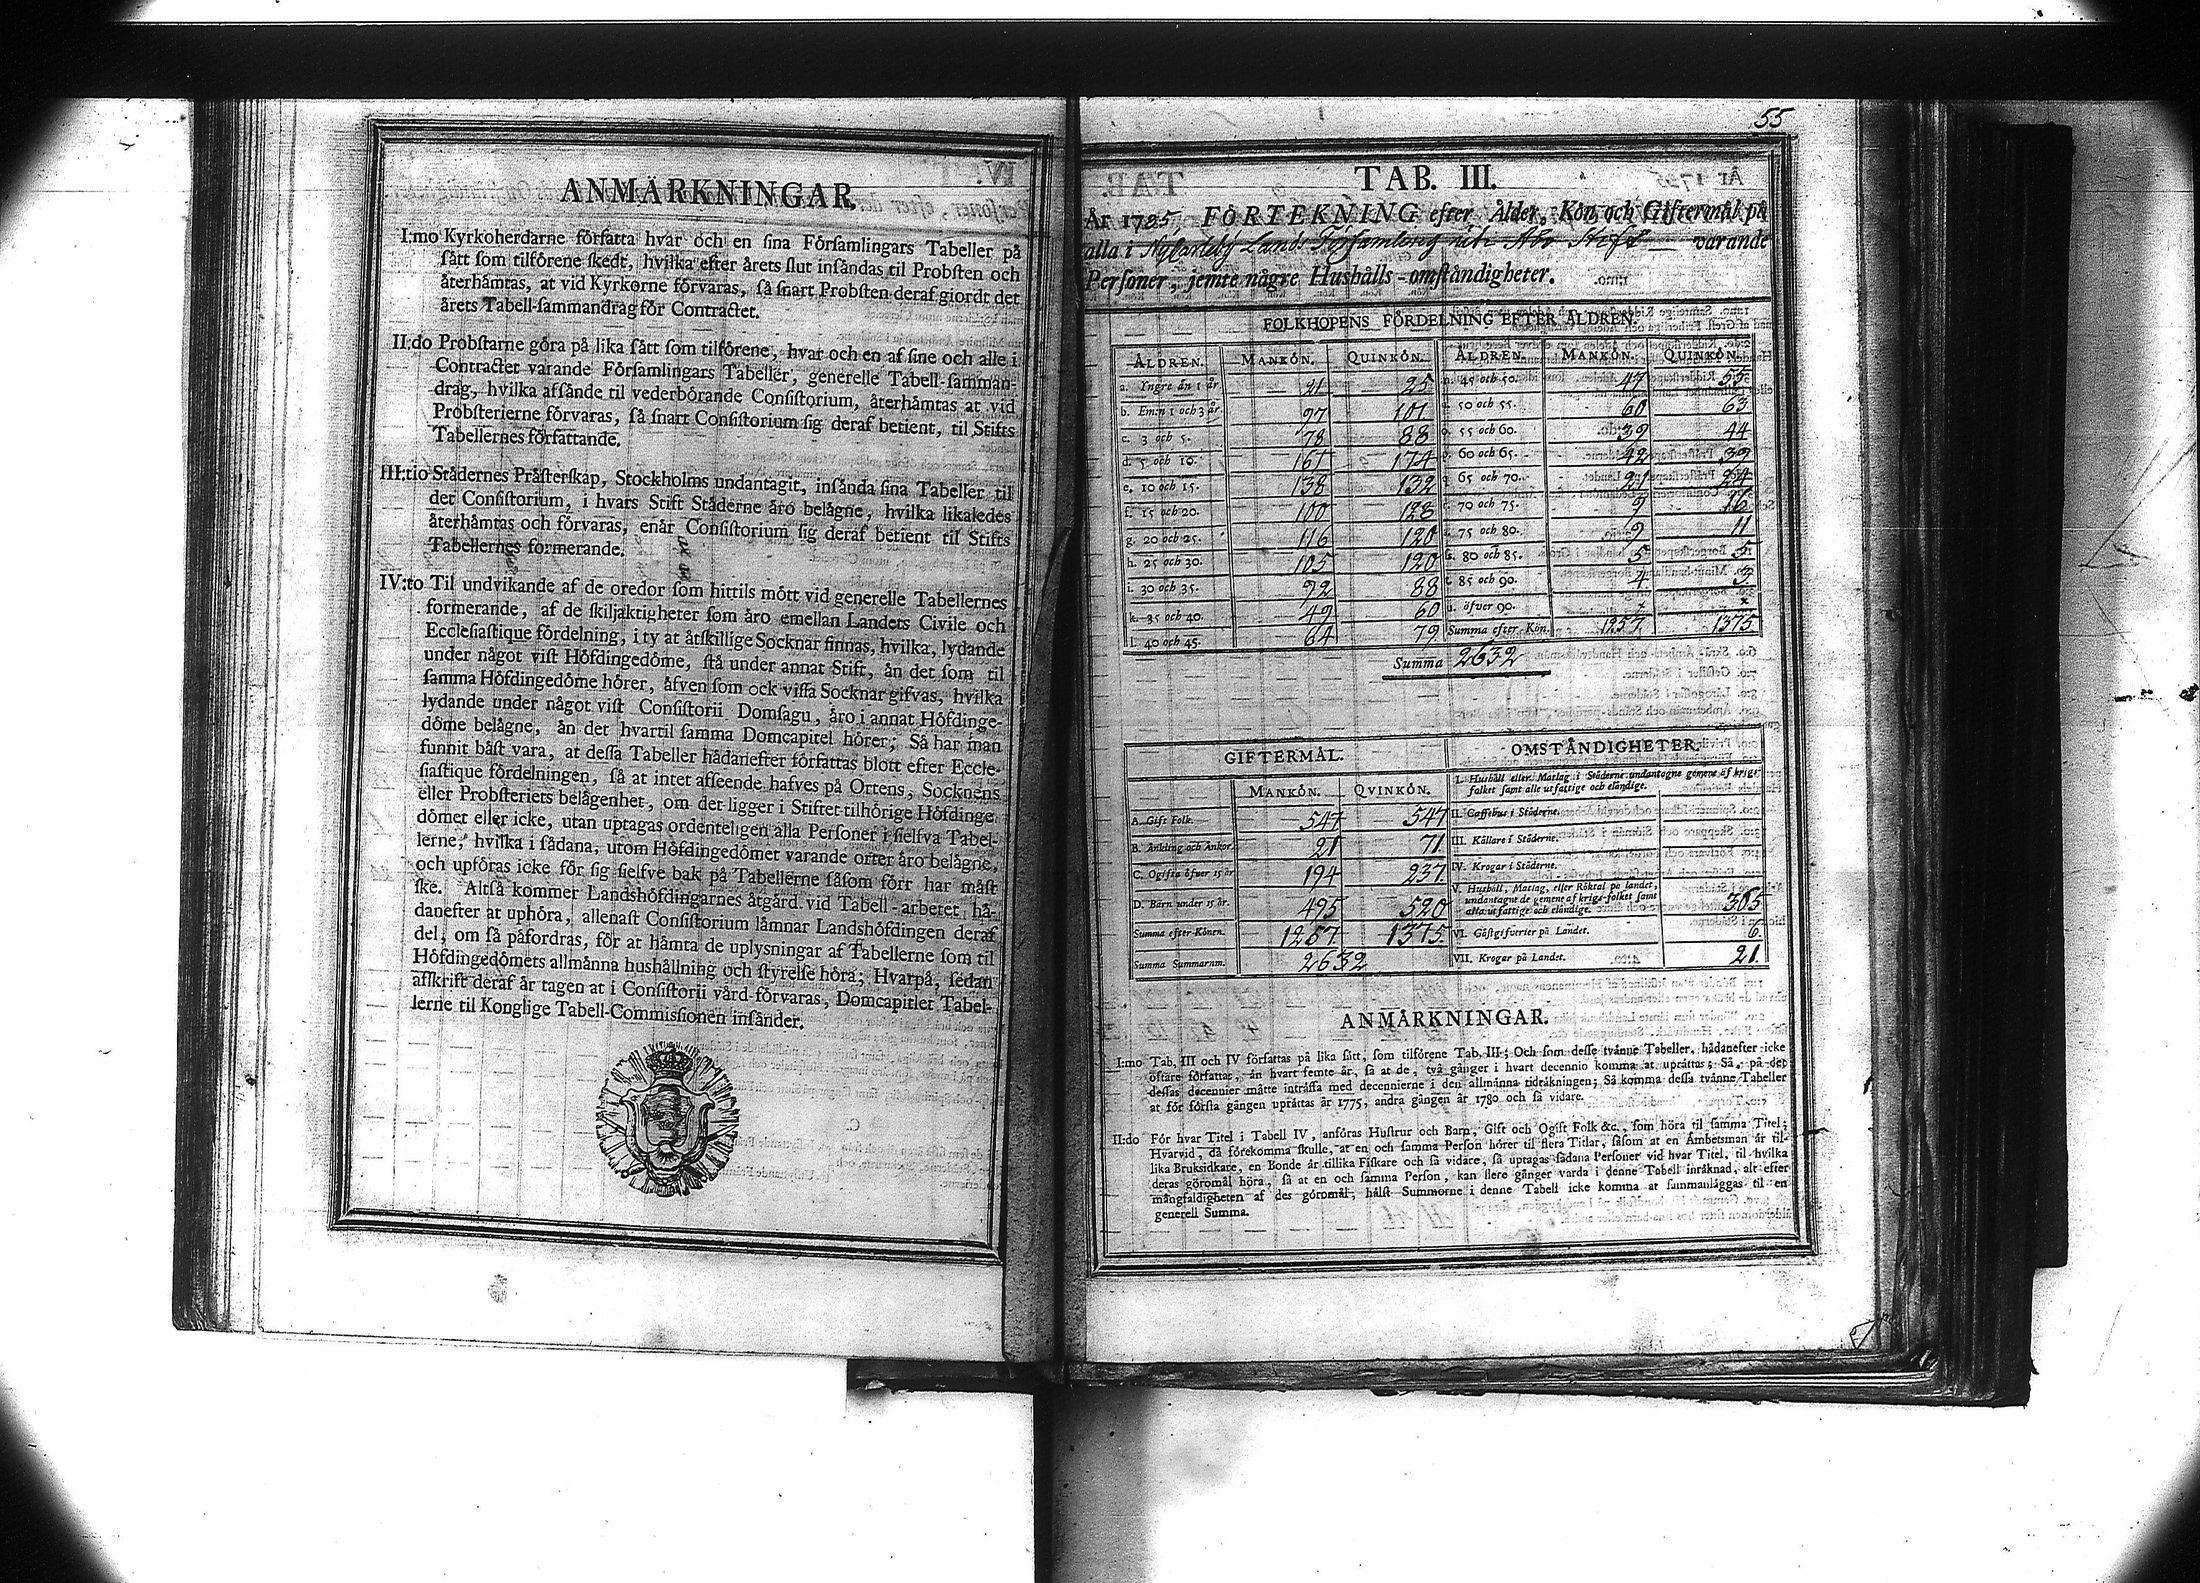 ANMÄRKNINGAR.
I:mo Kyrkoherdarne författa hvar och en sina Församlingars Tabeller på
sätt som tilförene skedt, hvilka efter årets slut insändas til Probsten och
återhämtas, at vid Kyrkorne förvaras, så snart Probsten deraf giordt det
årets Tabell-sammandrag för Contractet.
II:do Probstarne göra på lika sätt som tilförene, hvar och en af sine och alle i
Contractet varande Församlingars Tabeller, generelle Tabell-samman-
drag, hvilka afsände til vederbörande Consistorium, återhämtas at vid
Probsterierne förvaras, så snart Consistorium sig deraf betient, til Stifts
Tabellernes författande.
III:tio Städernes Prästerskap, Stockholms undantagit, insända sina Tabeller til
det Consistorium, i hvars Stift Städerne äro belägne, hvilka likaledes
återhämtas och förvaras, enär Consistorium sig deraf betient til Stifts
Tabellernes formerande.
IV:to Til undvikande af de oredor som hittils mött vid generelle Tabellernes
formerande, af de skiljaktigheter som äro emellan Landets Civile och
Ecclesiastique fördelning, i ty at åtskillige Socknar finnas, hvilka, lydande
under något vist Höfdingedöme, stå under annat Stift, än det som til
samma Höfdingedöme hörer, äfven som ock vissa Socknar gifvas, hvilka
lydande under något vist Consistorii Domsagu, äro i annat Höfdinge-
döme belägne, än det hvartil samma Domcapitel hörer; Så har man
funnit bäst vara, at dessa Tabeller hädanefter författas blott efter Eccle-
siastique fördelningen, så at intet afseende hafves på Ortens, Socknens
eller Probsteriets belägenhet, om det ligger i Stiftet tilhörige Höfdinge-
dömet eller icke, utan uptagas ordenteligen alla Personer i sielfva Tabel-
lerne, hvilka i sådana, utom Höfdingedömet varande orter äro belägne,
och upföras icke för sig sielfve bak på Tabellerne såsom förr har måst
ske. Altså kommer Landshöfdingarnes åtgärd vid Tabell-arbetet hä-
danefter at uphöra, allenast Consistorium lämnar Landshöfdingen deraf
del, om så påfordras, för at hämta de uplysningar af Tabellerne som til
Höfdingedömets allmänna hushållning och styrelse höra; Hvarpå, sedan
afskrift deraf är tagen at i Consistorii vård förvaras, Domcapitlet Tabel-
lerne til Konglige Tabell-Commissionen insänder.
55
TAB. III.
År 1785, FÖRTEKNING efter Ålder, Kön och Giftermål på
alla i Nykarleby Lands Församling uti Åbo Stift varande
Personer, jemte någre Hushålls-omständigheter.
FOLKHOPENS FÖRDELNING EFTER ÅLDREN.
ÅLDREN. MANKÖN. QUINKÖN. ÅLDREN. MANKÖN. QUINKÖN.
a. Yngre än 1 år 21 25 45 och 50. 47 55
b. Em:n 1 och 3 år. 97 101 50 och 55. 60 63
c. 3 och 5. 78 88 55 och 60. 39 44
d. 5 och 10. 161 174 60 och 65. 42 39
e. 10 och 15. 138 132 65 och 70. 21 24
f. 15 och 20. 100 128 70 och 75. 9 16
g. 20 och 25. 116 120 75 och 80. 9 11
h. 25 och 30. 105 120 80 och 85. 5 5
i. 30 och 35. 92 88 85 och 90. 4 3
k. 35 och 40. 49 60 u. öfver 90.
l. 40 och 45. 64 79 Summa efter Kön. 1257 1375
Summa 2632
GIFTERMÅL.
MANKÖN. QVINKÖN.
A. Gift Folk. 547 547
B. Änkling och Änkor 21 71
C. Ogifta öfver 15 år 194 237
D. Barn under 15 år. 495 520
Summa efter Könen. 1257 1375
Summa Summarum. 2632
OMSTÄNDIGHETER.
I. Hushåll eller Matlag i Städerne undantagne gemene af krigs-
folket samt alle utfattige och eländige.
II. Caffehus i Städerne.
III. Källare i Städerne.
IV. Krogar i Städerne.
V. Hushåll, Matlag, eller Röktal på landet,
undantagne de gemene af krigs-folket samt
alla utfattige och eländige. 365
VI. Gästgifverier på Landet. 6
VII. Krogar på Landet. 21.
ANMÄRKNINGAR.
I:mo Tab. III och IV författas på lika sätt, som tilförene Tab. III; Och som desse tvänne Tabeller, hädanefter icke
oftare författas, än hvart femte år, så at de, två gånger i hvart decennio komma at uprättas; Så, på det
dessas decennier måtte inträffa med decennierne i den allmänna tidräkningen; Så komma dessa tvänne Tabeller
at för första gången uprättas år 1775, andra gången år 1780 och så vidare.
II:do För hvar Titel i Tabell IV, anföras Hustrur och Barn, Gift och Ogift Folk &c., som höra til samma Titel;
Hvarvid, då förekomma skulle, at en och samma Person hörer til flera Titlar, såsom at en Ämbetsman är til-
lika Bruksidkare, en Bonde är tillika Fiskare och så vidare, så uptagas sådana Personer vid hvar Titel, til hvilka
deras göromål höra, så at en och samma Person, kan flere gånger varda i denne Tabell inräknad, alt efter
mångfaldigheten af des göromål, hälst Summorne i denne Tabell icke komma at summanläggas til en
generell Summa.